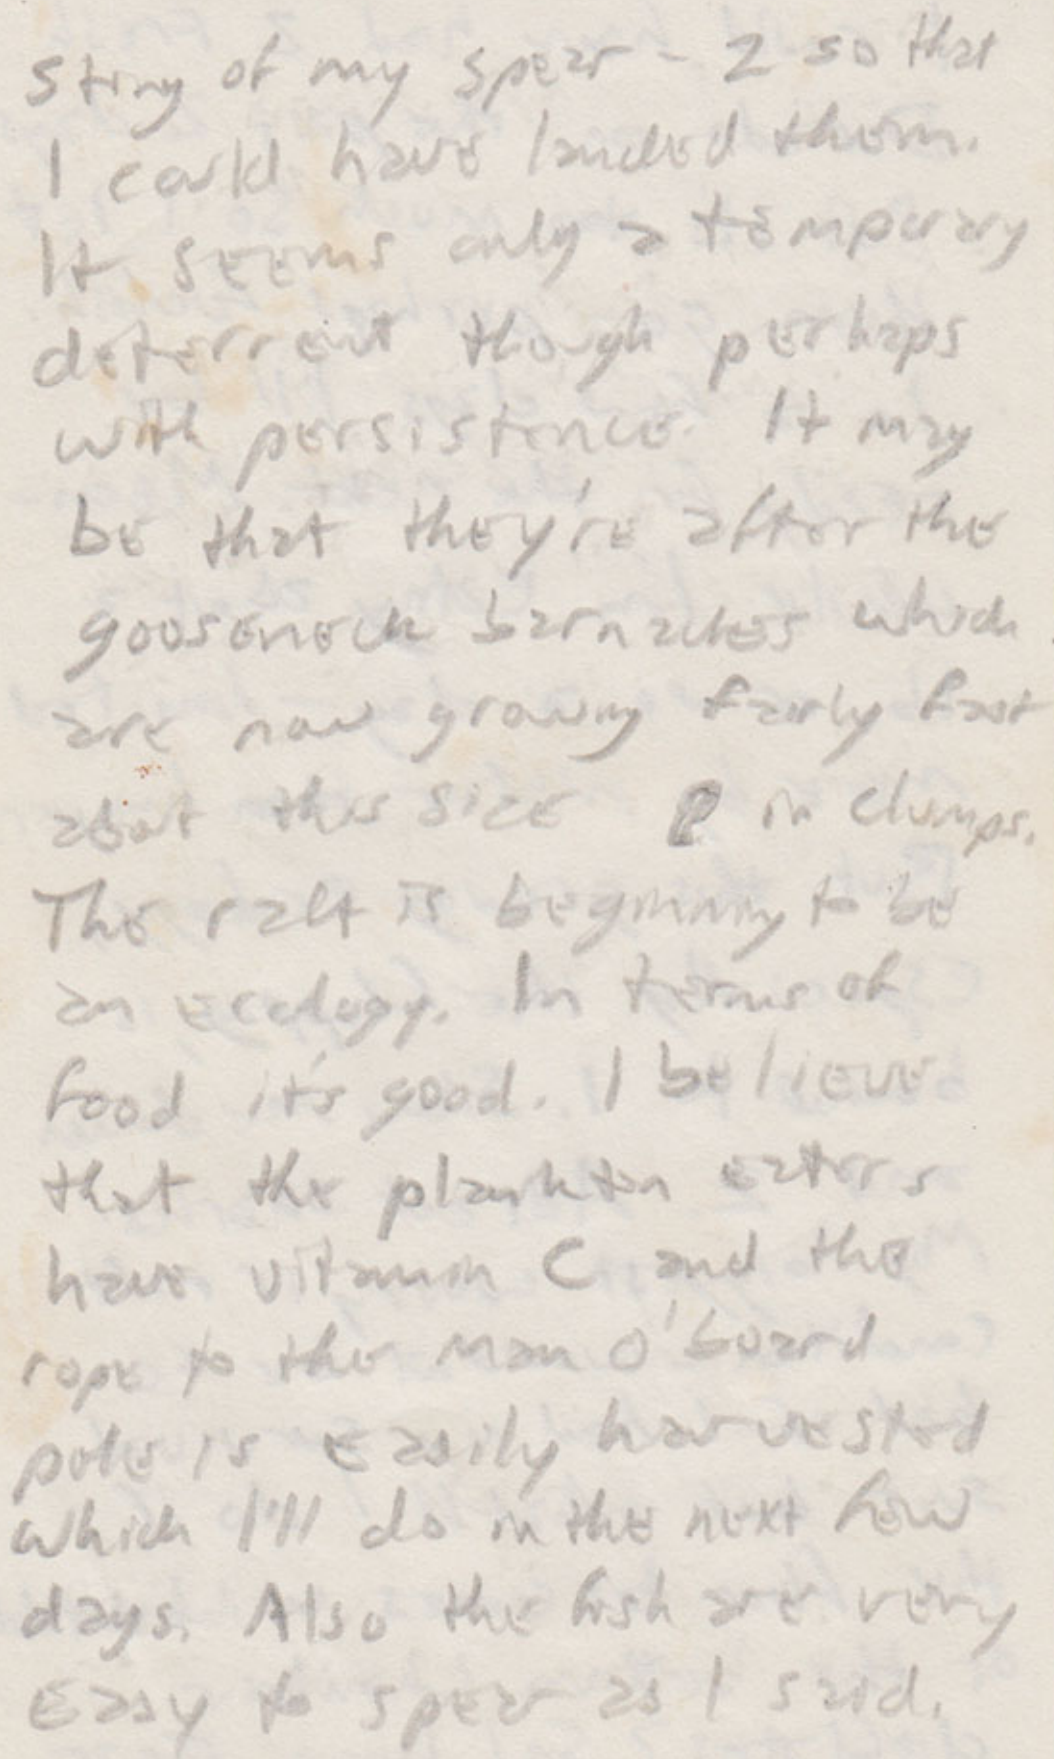 sting of my spear - 2 so that
I could have landed them.
It seems only a temporary
deterrent though perhaps
with persistence. It may
be that they're after the
gooseneck barnacles which
are now growing fairly fast
about this size in clumps.
The raft is beginning to be
an ecology. In terms of
food it's good. I believe
that the plankton eaters
have vitamin C and the
rope to the man o'board
pole is easily harvested
which I'll do in the next few
days. Also the fish are very
easy to spear as I said.